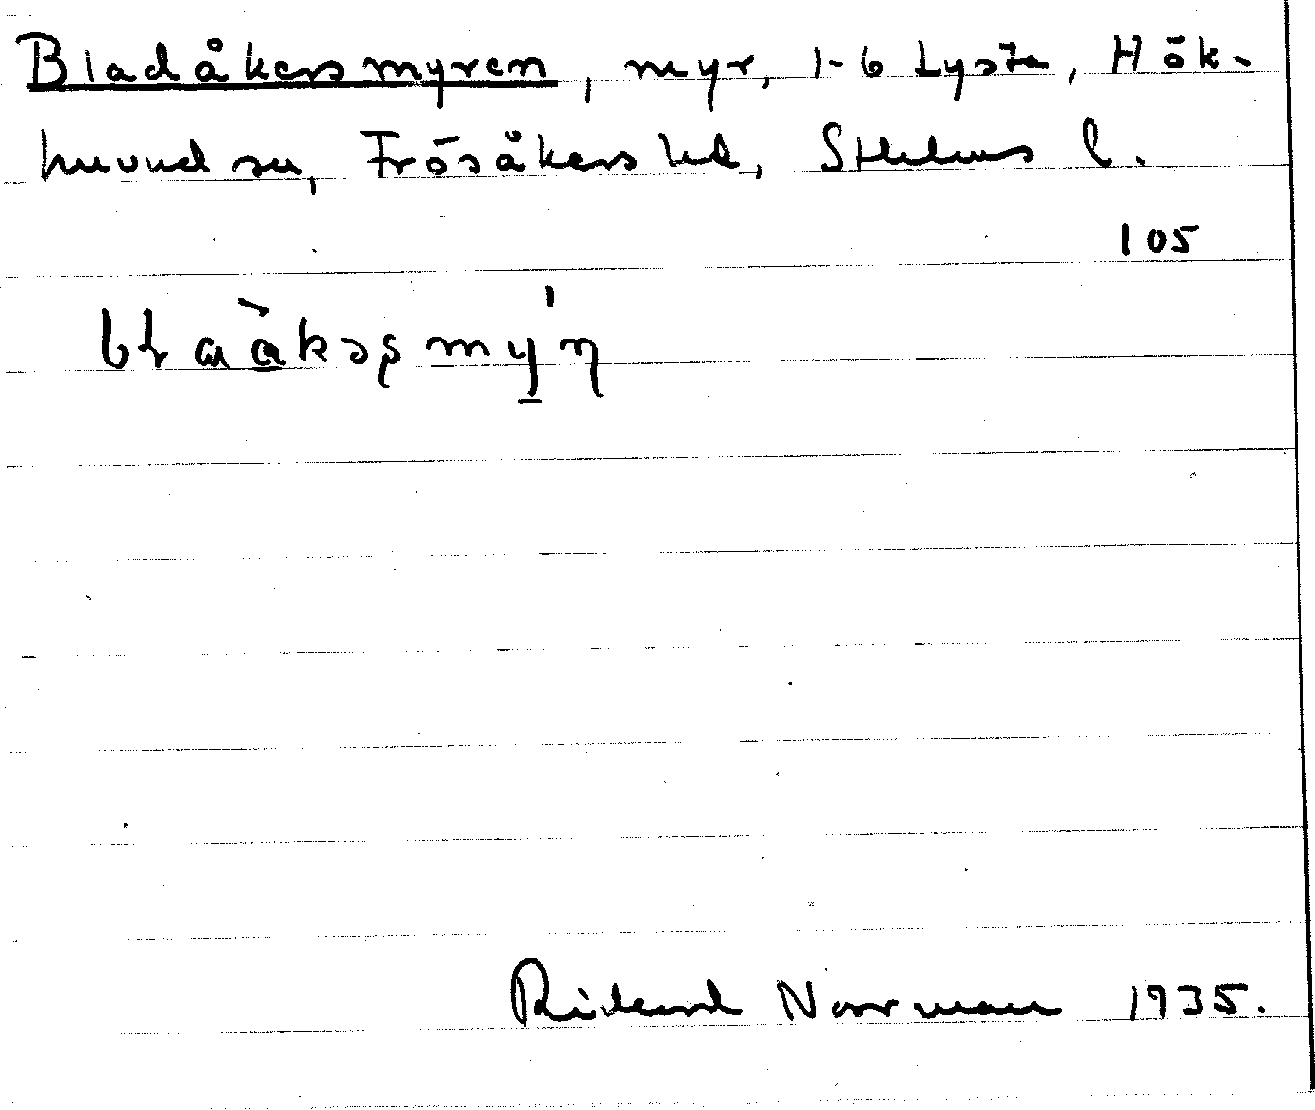 Bladåkersmyren, myr, 1-6 Lysta, Hök-
huvud sn, Frösåkers hd, Sthlms l.
105
Rikard Norrman 1935.